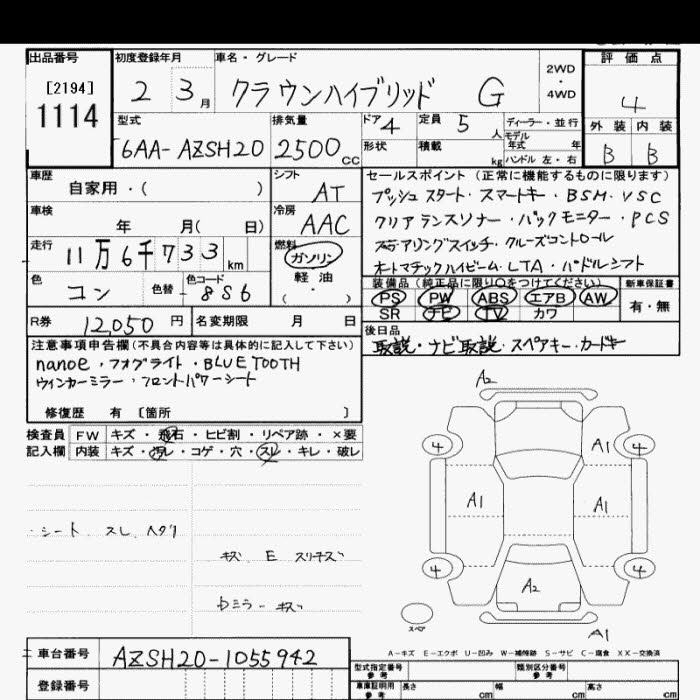 出品番号 初度登録年月 車名・グレード 2WD・4WD 評価点
[2194] 1114 2 3月 クラウンハイブリッド G 4
型式 排気量 ドア 4 定員 5人 ディーラー・並行 外装 内装
6AA-AZSH20 2500cc 形状 積載 kg モデル年式 年 ハンドル 左・右 B B
車歴 自家用・( ) シフト AT セールスポイント(正常に機能するものに限ります)
プッシュスタート・スマートキー・BSM・VSC
車検 年 月( 日) 冷房 AAC クリアランスソナー・バックモニター・PCS
走行 11万6千733km 燃料 ガソリン 軽油 ・( ) ステアリングスイッチ・クルーズコントロール
オートマチックハイビーム・LTA・パドルシフト
色 コン 色替 色コード 8S6 装備品(純正品に限り○をつけてください) 新車保証書
PS PW ABS エアB AW 有・無
SR ナビ TV カワ
R券 12,050円 名変期限 月 日 後日品
取説・ナビ取説・スペアキー・カードキー
注意事項申告欄(不具合内容等は具体的に記入して下さい)
nanoe・フォグライト・BLUETOOTH
ウィンカーミラー・フロントパワーシート
修復歴 有 [箇所 ]
検査員記入欄 FW キズ・飛石・ヒビ割・リペア跡・×要
内装 キズ・汚レ・コゲ・穴・スレ・キレ・破レ
・シート スレ ヘタリ
キズ E スリキズ
ドミラーキズ
A2
4 A1 4
A1 A1
4 A2 4
スペア A1
A-キズ E-エクボ U-凹み W-補修跡 S-サビ C-腐食 XX-交換済
車台番号 AZSH20-1055942
登録番号
型式指定番号 参考 類別区分番号 参考
車庫証明用 参考 長さ cm 幅 cm 高さ cm